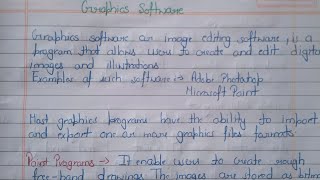 Graphics Software
Graphics software or image editing software, is a
program that allows users to create and edit digital
images and illustrations.
Examples of such software :- Adobe Photoshop
Microsoft Paint
Most graphics programs have the ability to import
and export one or more graphics files formats.
Paint Programs → It enable users to create rough
free-hand drawings. The images are stored as bitmap